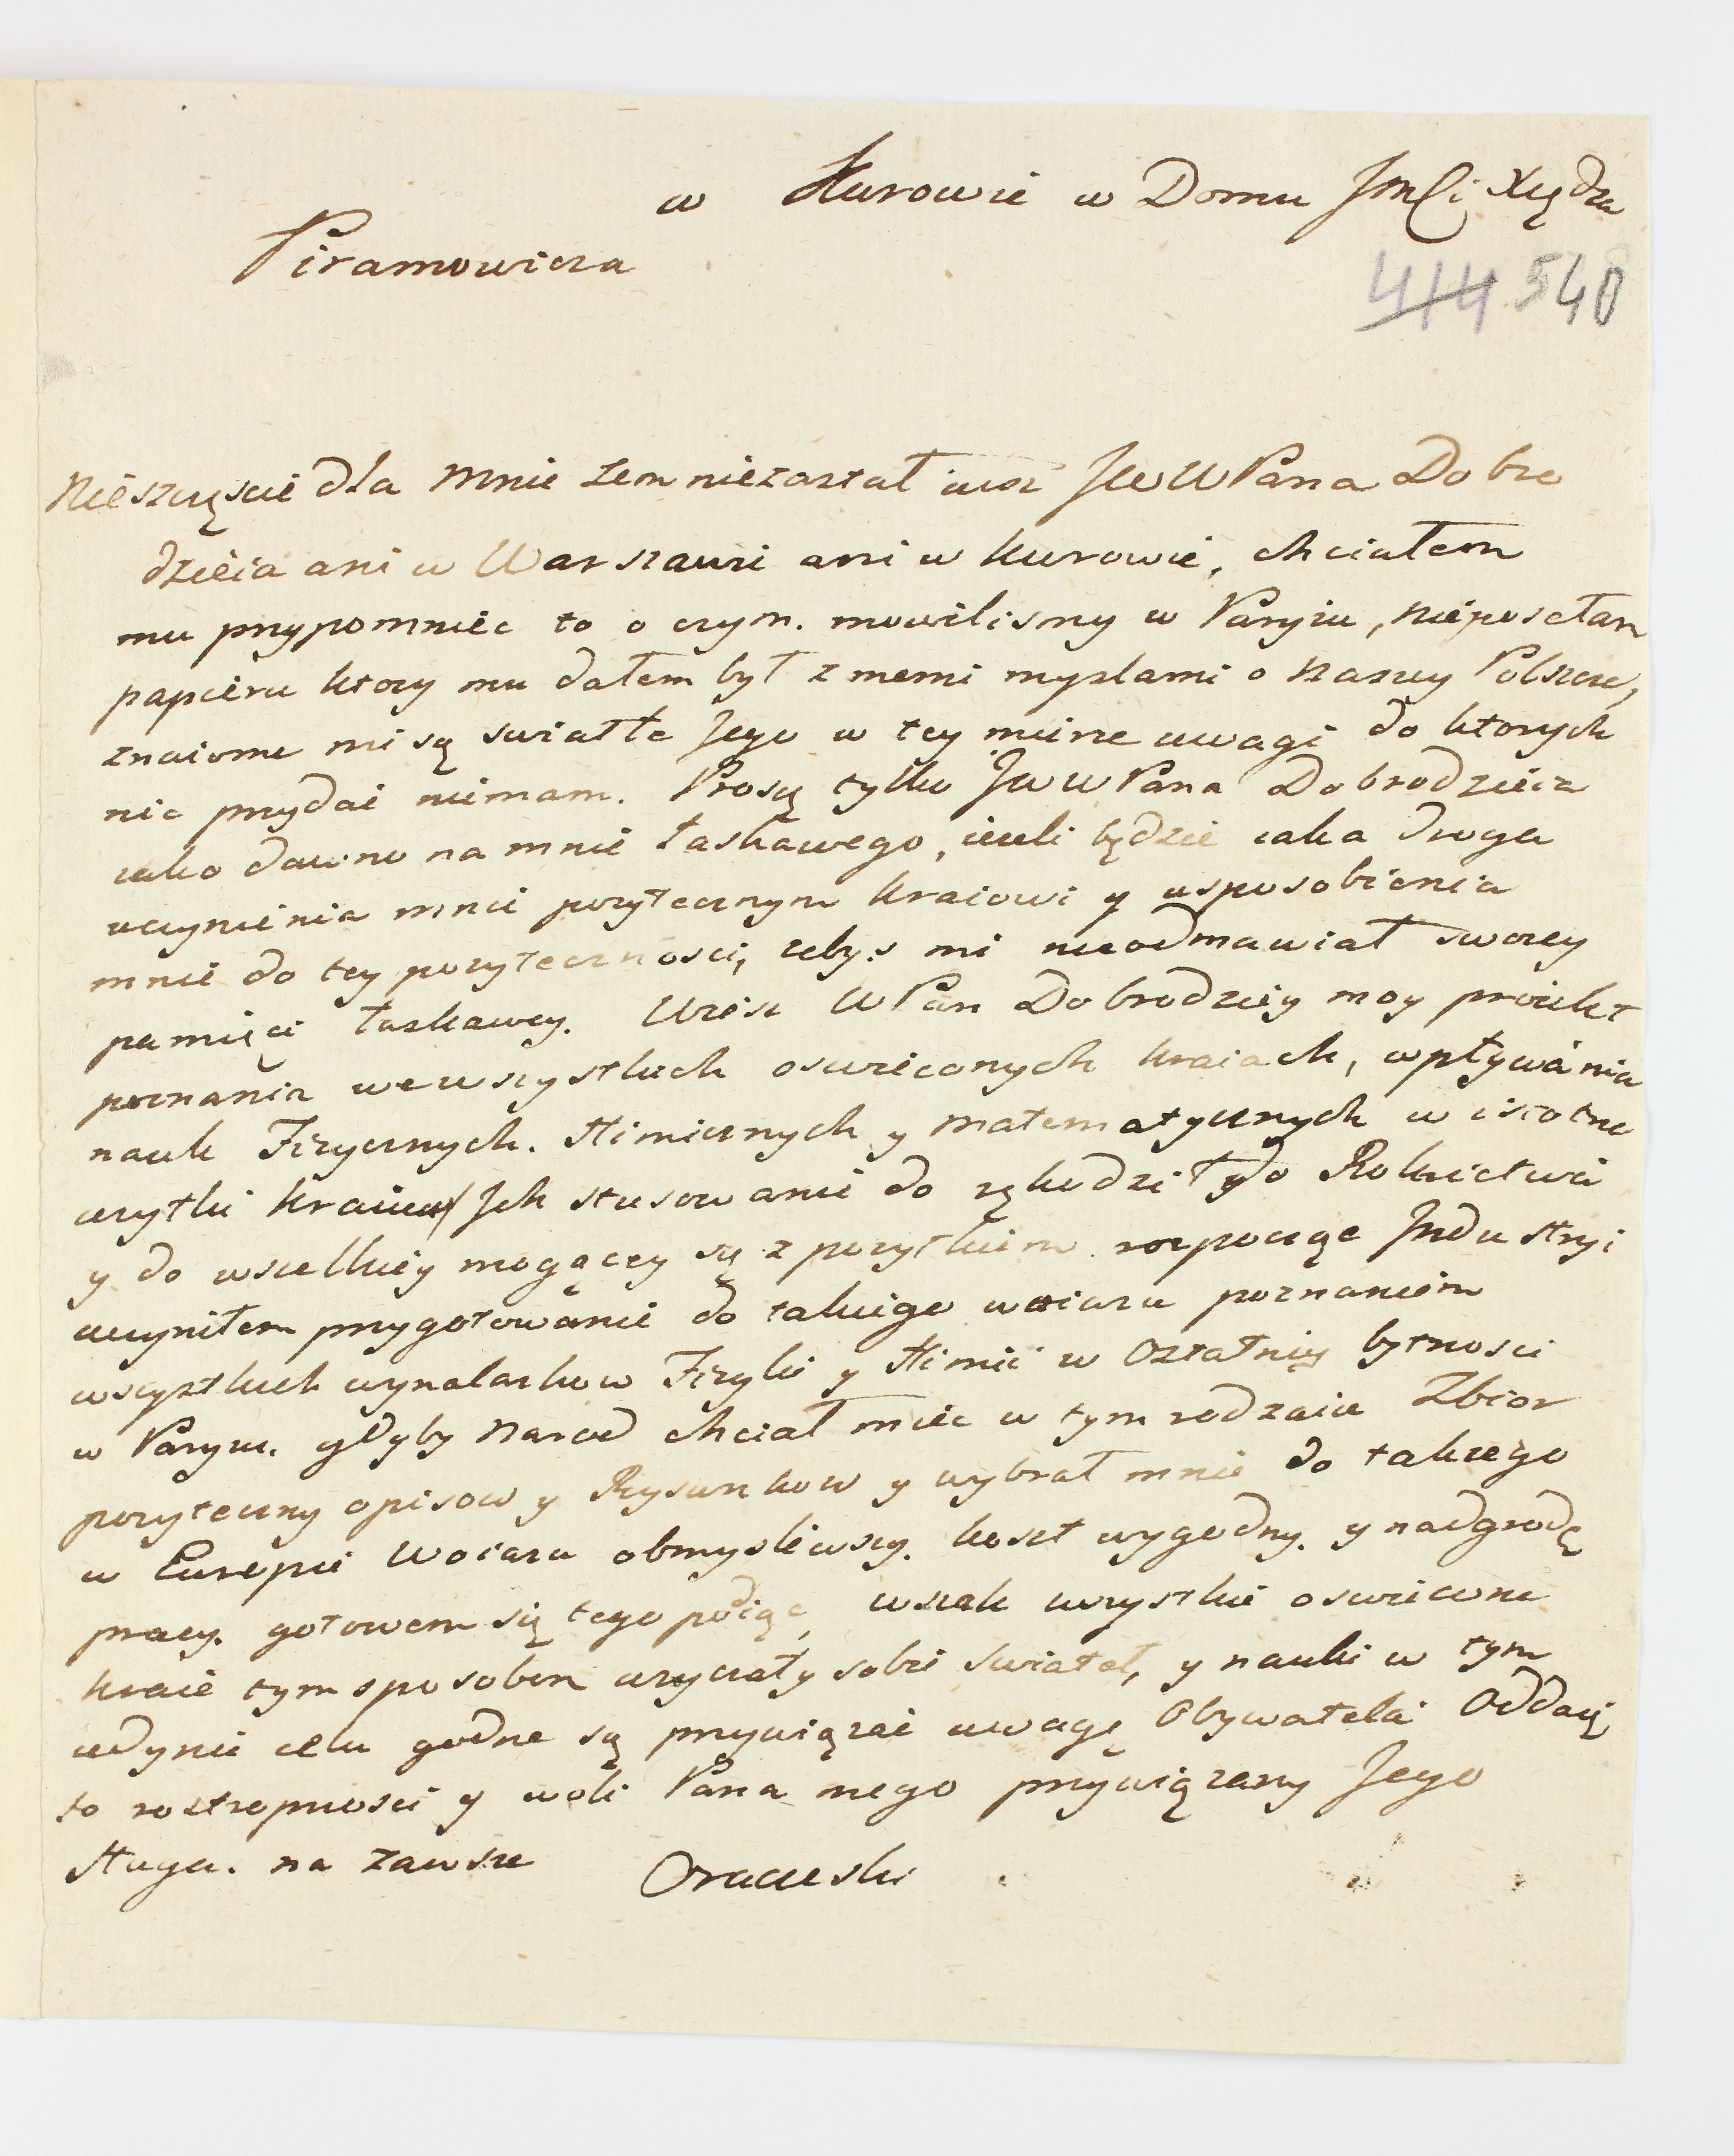 w Kurowie w Domu Jmci Xiędza
Piramowicza
414 540
Nieszczęscie dla mnie żem niezastał iusz JWW Pana Dobro
dzieia ani w Warszawie ani w Kurowie, chciałem
mu przypomniec to o czym. mowilismy w Paryżu, nieposełam
papieru ktory mu dałem był z memi myslami o naszey Polszcze,
znaiome mi są swiatłe Jego w tey mierze uwagi do ktorych
nic przydai niemam. Proszę tylko JWW Pana Dobrodzieia
iako dawno na mnie łaskawego, iezeli będzie iaka droga
uczynienia mnie pozytecznym Kraiowi y usposobienia
mnie do tey pozytecznosci, zebys mi nieodmawiał swoiey
pamięci łaskawey. Wiesz WPan Dobrodziey moy proiekt
poznania wewszystkich oswieconych kraiach, wpływania
nauk Fizycznych. Himicznych y matematycznych w istotne
uzytki Kraiow Jch stusowanie do rękodzieł y do Rolnictwa
y do wszelkiey mogącey się z pozytkiem rozpocząc Jndustryi
uczyniłem przygotowanie do takiego woiazu poznaniem
wszystkich wynalazkow Fizyki y Himii w Ostatniey bytnosci
w Paryzu. gdyby Narod chciał miec w tym rodzaiu Zbior
pozyteczny opisow y Rysunkow y wybrał mnie do takiego
w Europie Woiazu obmysliwszy. koszt wygodny. y nadgrodę
pracy. gotowem się tego podiąc, wszak wszystkie oswiecone
kraie tym sposobem uzyczały sobie swiateł, y nauki w tym
iedynie celu godne są przywiązai uwagę Obywatela Oddaię
to roztropnosci y woli Pana mego przywiązany Jego
sługa. na zawsze Oraczeski